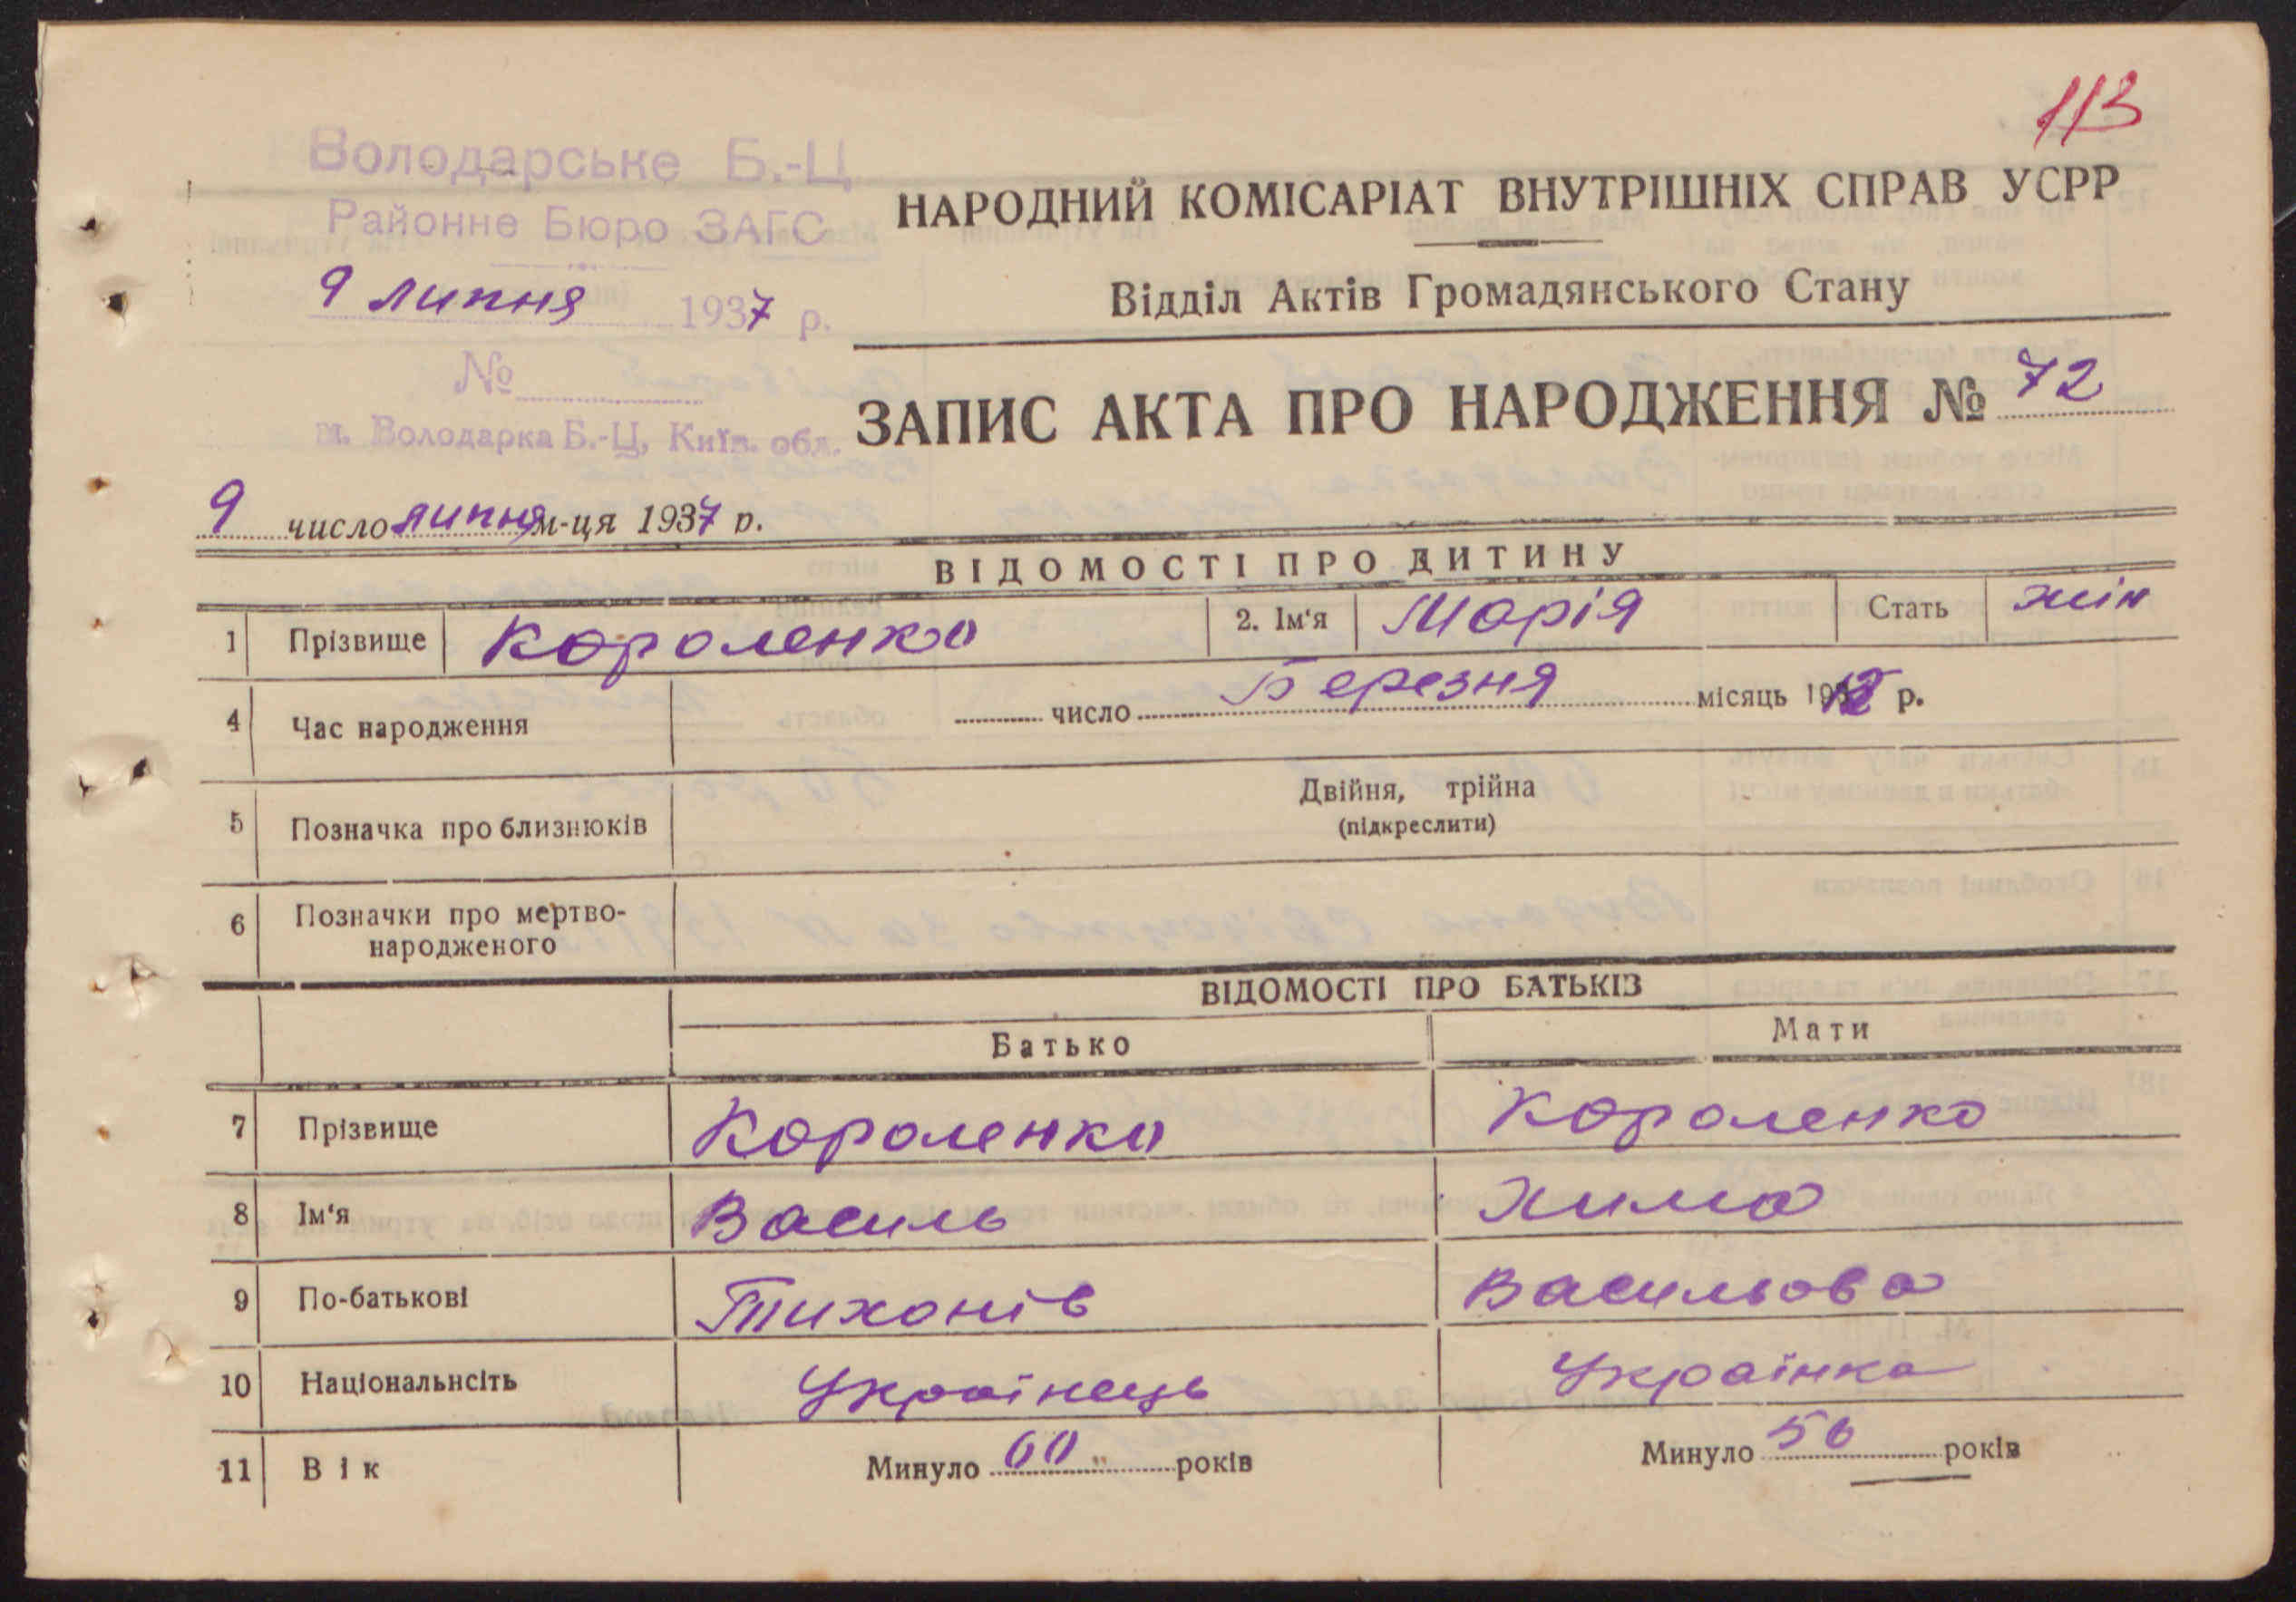 113
Володарське Б.-Ц
Районне Бюро ЗАГС
9 липня 1937 р.
№
м. Володарка Б.-Ц, Київ. обл.
НАРОДНИЙ КОМІСАРІАТ ВНУТРІШНІХ СПРАВ УСРР
Відділ Актів Громадянського Стану
ЗАПИС АКТА ПРО НАРОДЖЕННЯ № 72
9 число липня м-ця 1937 р.
ВІДОМОСТІ ПРО ДИТИНУ
1 Прізвище Короленко 2. Ім'я Марія Стать жін
4 Час народження число Березня місяць 1912 р.
5 Позначка про близнюків Двійня, трійна
(підкреслити)
6 Позначки про мертво-
народженого
ВІДОМОСТІ ПРО БАТЬКІЗ
Батько Мати
7 Прізвище Короленко Короленко
8 Ім'я Василь Химa
9 По-батькові Тихонів Васильова
10 Національнсіть Українець Українка
11 Вік Минуло 60 років Минуло 56 років